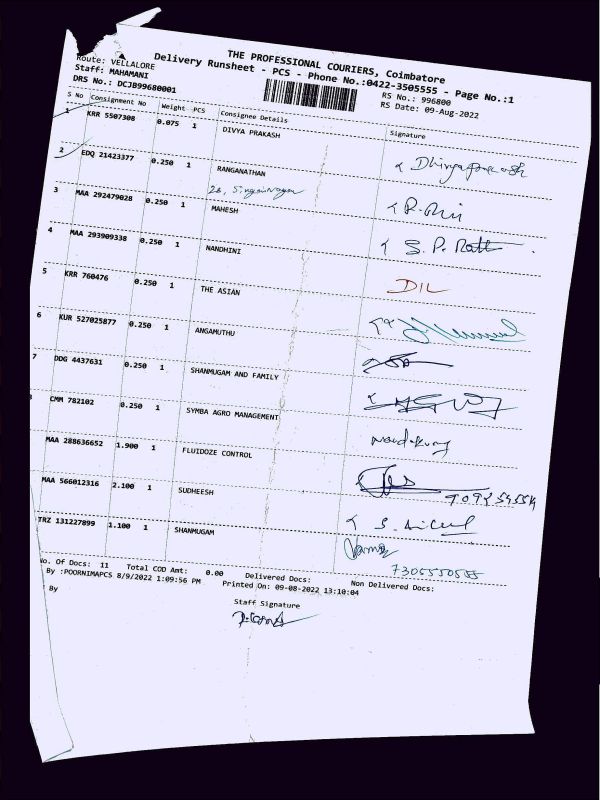 THE PROFESSIONAL COURIERS, Coimbatore
Delivery Runsheet - PCS - Phone No.:0422-3505555 - Page No.:1
Route: VELLALORE
Staff: MAHAMANI
DRS No.: DCJB99680001
RS No.: 996800
RS Date: 09-Aug-2022
S No Consignment No Weight PCS Consignee Details Signature
1 KRR 5507308 0.075 1 DIVYA PRAKASH
2 EDQ 21423377 0.250 1 RANGANATHAN
3 MAA 292479028 0.250 1 MAHESH
4 MAA 293909338 0.250 1 NANDHINI
5 KRR 760476 0.250 1 THE ASIAN DIL
6 KUR 527025877 0.250 1 ANGAMUTHU
7 DDG 4437631 0.250 1 SHANMUGAM AND FAMILY
CMM 782102 0.250 1 SYMBA AGRO MANAGEMENT
MAA 288636652 1.900 1 FLUIDOZE CONTROL
MAA 566012316 2.100 1 SUDHEESH
TRZ 131227899 1.100 1 SHANMUGAM
7305550555
No. Of Docs: 11 Total COD Amt: 0.00 Delivered Docs: Non Delivered Docs:
By :POORNIMAPCS 8/9/2022 1:09:56 PM Printed On: 09-08-2022 13:10:04
By
Staff Signature